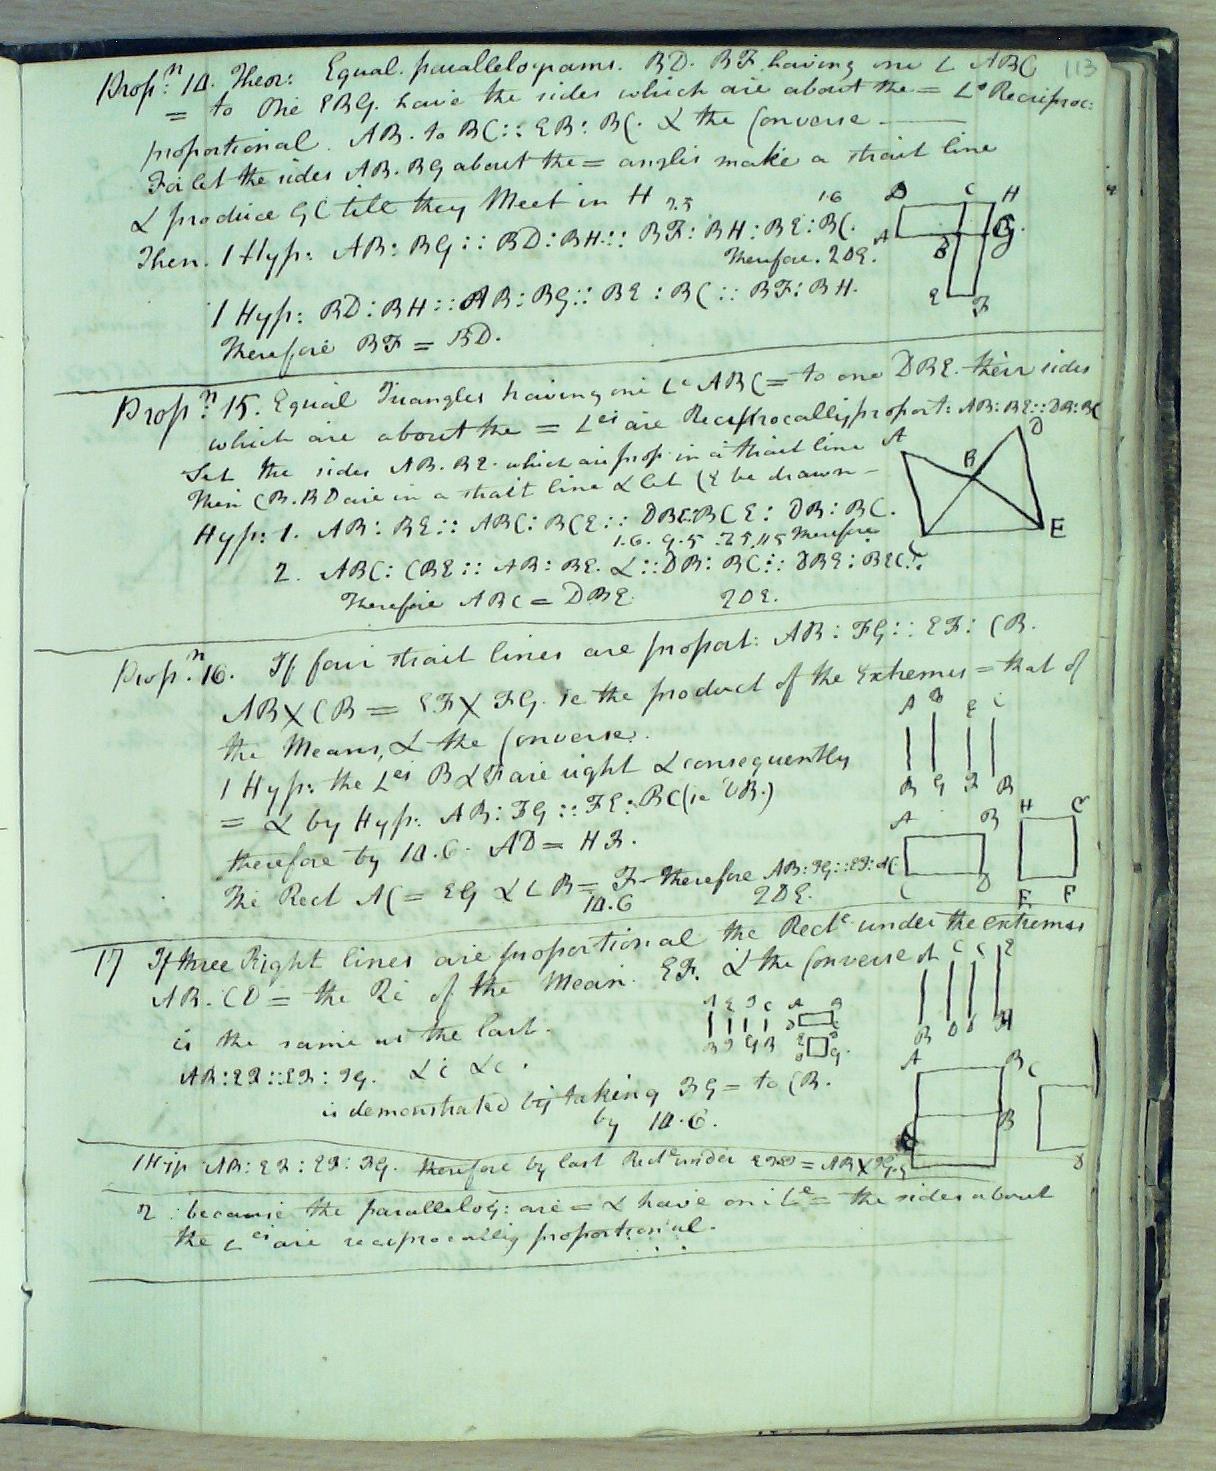 113
Propn: 14. Theor: Equal parallelograms. BD. BF. having one L ABC
= to one EBG. have the sides which are about the = Ls Reciproc:
proportional. AB. to BG:: EB: BC. & the Converse
For let the sides AB. BG about the = angles make a strait line
& produce GC till they Meet in H
Then. 1 Hyp: AB: BG:: BD: BH:: BF: BH: BE: BC.
Therefore. QDE.
1 Hyp: BD: BH:: AB: BG:: BE: BC:: BF: BH.
Therefore BF = BD.
D C H
A B G
E F
Propn: 15. Equal Triangles having one Le ABC = to one DBE. their sides
which are about the = Les are Reciprocally proport: AB: BE:: DB: BC
Let the sides AB. BE. which are prop in a strait line
Then CB. BD are in a strait line & let CE be drawn
Hyp: 1. AB: BE:: ABC: BCE:: DBE: BCE: DB: BC.
1.6. 9.5 Therefore
2. ABC: CBE:: AB: BE. &:: DB: BC:: DBE: BEC.
Therefore ABC = DBE QDE.
A B D
C E
Propn. 16. If four strait lines are proport: AB: FG:: EF: CB.
AB X CB = EF X FG. ie the product of the Extremes = that of
the Means, & the Converse.
1 Hyp: the Les B & F are right & consequently
= & by Hyp: AB: FG:: FE: BC (ie CB.)
therefore by 14.6. AD = HF.
The Rect AC = EG & L B = F therefore AB: FG:: EF: BC
14.6 QDE.
A B E C
B G F B
A B H C
C D E F
17 If three Right lines are proportional the Recte under the extremes
AB. CD = the Re of the Mean. EF. & the Converse
is the same as the last.
AB: EF:: EF: FG. &c &c.
is demonstrated by taking FG = to CB.
by 14.6.
1 Hyp AB: EF: EF: FG. therefore by last Recte under = AB X FG
2 because the parallelog: are = & have one Le = the sides about
the Les are reciprocally proportional.